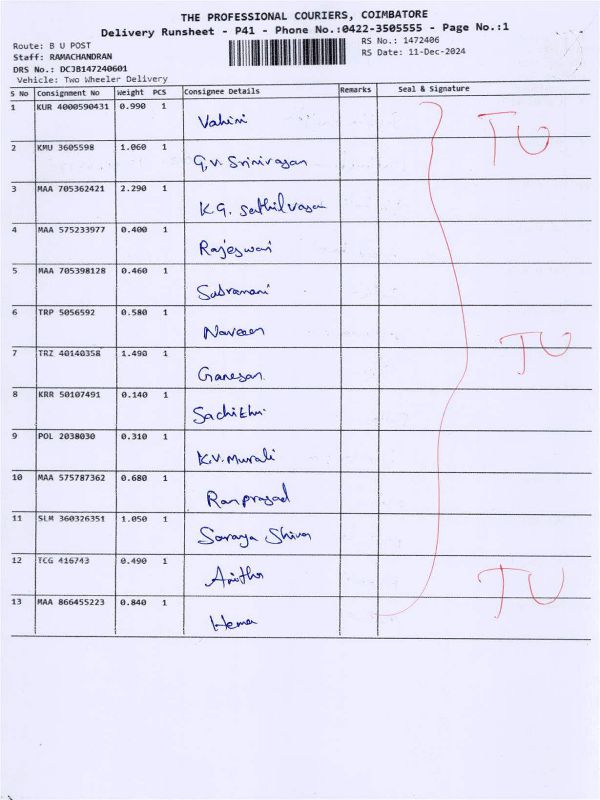 THE PROFESSIONAL COURIERS, COIMBATORE
Delivery Runsheet - P41 - Phone No.:0422-3505555 - Page No.:1
Route: B U POST
RS No.: 1472406
Staff: RAMACHANDRAN
RS Date: 11-Dec-2024
DRS No.: DCJB147240601
Vehicle: Two Wheeler Delivery
S No Consignment No Weight PCS Consignee Details Remarks Seal & Signature
1 KUR 4000590431 0.990 1 Vahini
TU
2 KMU 3605598 1.060 1 G.V. Srinivasan
3 MAA 705362421 2.290 1 K.G. Sethilvasan
4 MAA 575233977 0.400 1 Rajeswari
5 MAA 705398128 0.460 1 Subramani
6 TRP 5056592 0.580 1 Naveen
TU
7 TRZ 40140358 1.490 1 Ganesan
8 KRR 50107491 0.140 1
9 POL 2038030 0.310 1 K.V. Murali
10 MAA 575787362 0.680 1 Ramprasad
11 SLM 360326351 1.050 1 Saranya Shiva
12 TCG 416743 0.490 1 Anitha
TU
13 MAA 866455223 0.840 1 Hema